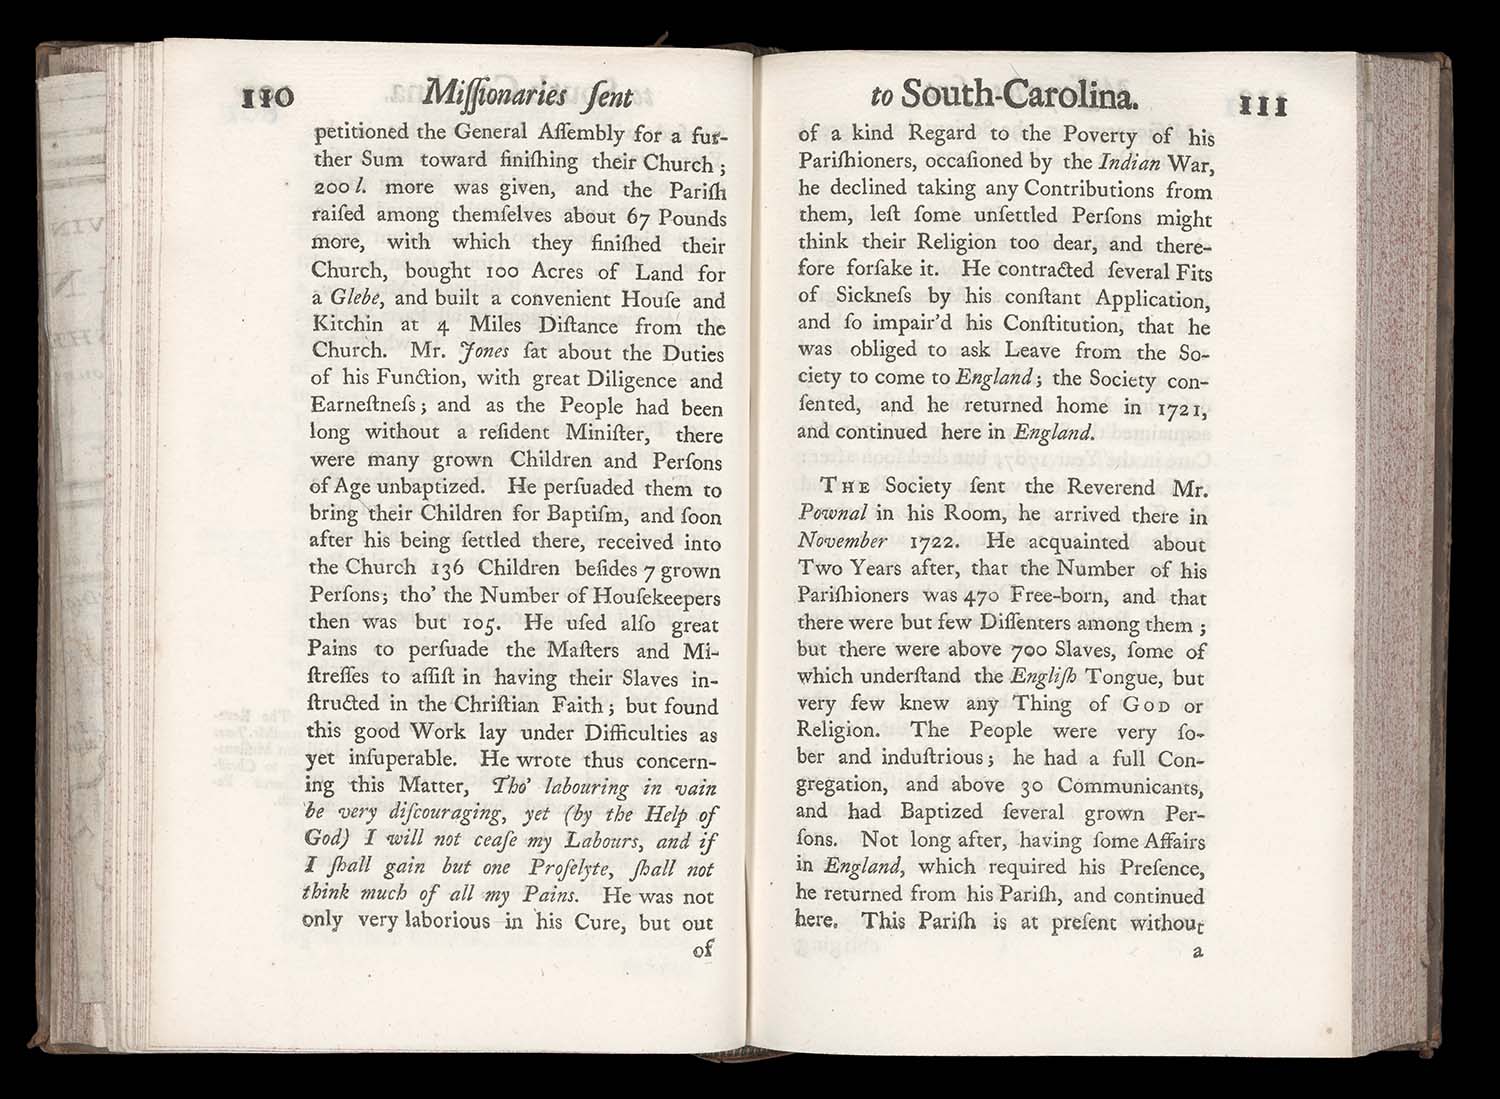 110 Miſſionaries ſent
petitioned the General Aſſembly for a fur-
ther Sum toward finiſhing their Church;
200 l. more was given, and the Pariſh
raiſed among themſelves about 67 Pounds
more, with which they finiſhed their
Church, bought 100 Acres of Land for
a Glebe, and built a convenient Houſe and
Kitchin at 4 Miles Diſtance from the
Church. Mr. Jones ſat about the Duties
of his Function, with great Diligence and
Earneſtneſs; and as the People had been
long without a reſident Miniſter, there
were many grown Children and Perſons
of Age unbaptized. He perſuaded them to
bring their Children for Baptiſm, and ſoon
after his being ſettled there, received into
the Church 136 Children beſides 7 grown
Perſons; tho' the Number of Houſekeepers
then was but 105. He uſed alſo great
Pains to perſuade the Maſters and Mi-
ſtreſſes to aſſiſt in having their Slaves in-
ſtructed in the Chriſtian Faith; but found
this good Work lay under Difficulties as
yet inſuperable. He wrote thus concern-
ing this Matter, Tho' labouring in vain
be very diſcouraging, yet (by the Help of
God) I will not ceaſe my Labours, and if
I ſhall gain but one Proſelyte, ſhall not
think much of all my Pains. He was not
only very laborious in his Cure, but out
of
to South-Carolina. 111
of a kind Regard to the Poverty of his
Pariſhioners, occaſioned by the Indian War,
he declined taking any Contributions from
them, leſt ſome unſettled Perſons might
think their Religion too dear, and there-
fore forſake it. He contracted ſeveral Fits
of Sickneſs by his conſtant Application,
and ſo impair'd his Conſtitution, that he
was obliged to ask Leave from the So-
ciety to come to England; the Society con-
ſented, and he returned home in 1721,
and continued here in England.
THE Society ſent the Reverend Mr.
Pownal in his Room, he arrived there in
November 1722. He acquainted about
Two Years after, that the Number of his
Pariſhioners was 470 Free-born, and that
there were but few Diſſenters among them;
but there were above 700 Slaves, ſome of
which underſtand the Engliſh Tongue, but
very few knew any Thing of GOD or
Religion. The People were very ſo-
ber and induſtrious; he had a full Con-
gregation, and above 30 Communicants,
and had Baptized ſeveral grown Per-
ſons. Not long after, having ſome Affairs
in England, which required his Preſence,
he returned from his Pariſh, and continued
here. This Pariſh is at preſent without
a